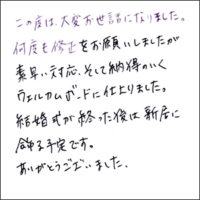 この度は、大変お世話になりました。
何度も修正をお願いしましたが
素早い対応、そして納得のいく
ウェルカムボードに仕上りました。
結婚式が終った後は新居に
飾る予定です。
ありがとうございました。